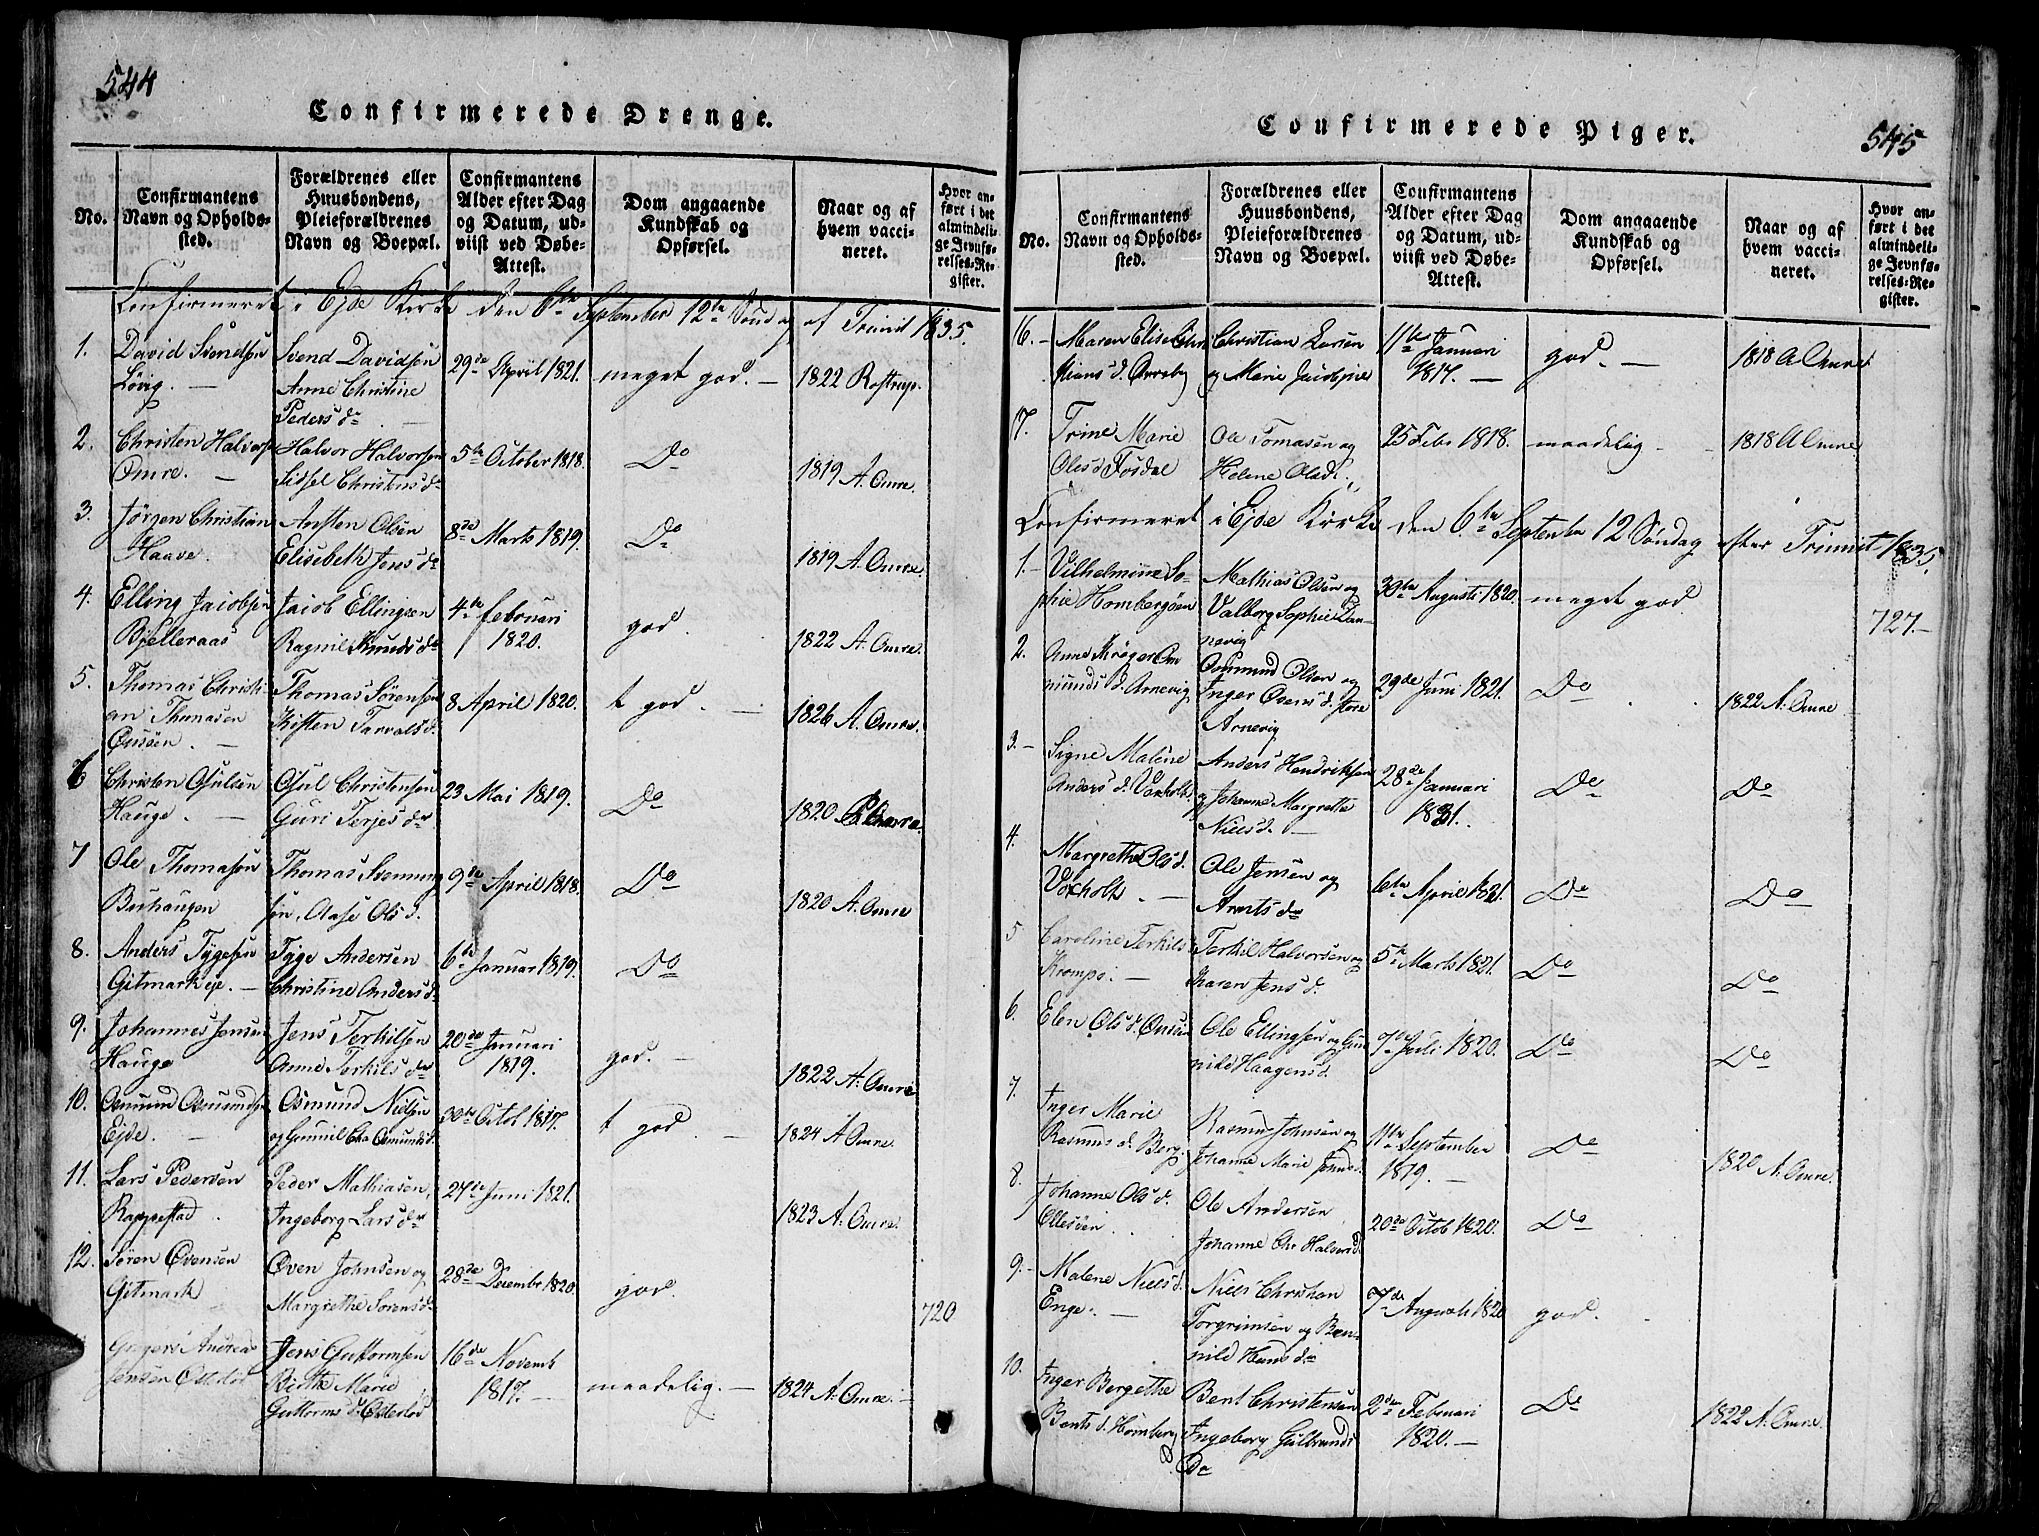 544
Confirmerede Drenge.
No.
Confirmantens Navn og Opholdssted.
Forældrenes eller Huusbondens, Pleieforældrenes Navn og Boepæl.
Confirmantens Alder efter Dag og Datum, udviist ved Døbe-Attest.
Dom angaaende Kundskab og Opførsel.
Naar og af hvem vaccineret.
Hvor anført i det almindelige Jevnførelses-Register.
Confirmeret i Ejde Kirke den 6te September 12te Sönd af Trinit 1835
1. David Svendsön
Svend Davidsön
29de April 1821.
meget god. —
1822 Rostrup.
Lövig. —
Anne Christine
Peders d.
2. Christen Halvors
Halvor Halvorsen
5te October 1818.
Do
1819 A. Omre.
Omre. —
Sidsel Christens d.
3. Jørgen Christian
Ansten Olsen
8de Marts 1819.
Do
1819 A. Omre.
Haave.
Elisebeth Jens d.
4. Elling Jacobsen
Jacob Ellingsen
4de Februari
1820.
god.
1822 A. Omre.
Bjelleraas
Ragnil Knuds d.
5. Thomas Christi-
Thomas Sörensen
8 April 1820.
t god. —
1826 A. Omre.
an Thomasen
Kisten Tarvals d.
6 Christen Osulsen
Osul Christensen
23 Mai 1819.
Do
1820
Hauge. —
Guri Terjes d.
7 Ole Thomasön
Thomas Svennung
9de April 1818.
Do
1820 A. Omre
sön, Aase Ols d.
8. Anders Tygesen
Tyge Andersen
6te Januar 1819.
Do
Gitmark eje. —
Christine Anders d.
9. Johannes Jensen
Jens Terkilsen
20de Januari
1819.
god. —
1822 A. Omre
Hauge
Anne Terkils d.
10. Osmund Osmundsen
Osmund Nielsen
30te Octob 1817.
t god. —
1824 A. Omre.
Ejde. —
og Gunnil Chr. Osmunds d.
11. Lars Pedersen
Peder Mathiasen,
27de Juni 1821.
1823 A. Omre.
Rappestad.
Ingeborg Lars d.
12. Sören Övensen
Öven Johnsen og
28de Decembr 1820.
god.
720
Gitmark
Margrethe Sörens d.
Jens Guttormsen
16de Novemb
1817. —
maadelig. —
1824 A. Omre. —
Jensen Osterlid
Birthe Marie
Guttorms d. Österlid
545
Confirmerede Piger.
No.
Confirmantens Navn og Opholdssted.
Forældrenes eller Huusbondens, Pleieforældrenes Navn og Boepæl.
Confirmantens Alder efter Dag og Datum, udviist ved Døbe-Attest.
Dom angaaende Kundskab og Opførsel.
Naar og af hvem vaccineret.
Hvor anført i det almindelige Jevnførelses-Register.
16. — Maren Elise Chri
Christian Larsen
11te Januari
1817. —
god. —
1818 A Omre.
stians d.
og Marie Jacobsen
17. Trine Marie
Ole Tomasen og
25 Febr 1818.
maadelig —
1818 A Omre
Oles d Fosdal
Helene Olsd.
Confirmeret i Ejde Kirke den 6te Septembr 12 Söndag efter Trinit 1835.
1. — Vilhelmine So-
Mathias Olsen og
30te Augusti 1820.
meget god
727. —
phie Hombergöen
Valborg Sophie Dan-
nevig
2. Anne Kröger Os
Osmund Olsen og
29de Juni 1821.
Do
1822 A. Omre
munds d. Arnevig
Inger Övens d. store
Arnevig
3. — Signe Malene
Anders Hendriksen
28de Januari
1821.
Do
Do
Anders d. Voxholt
og Johanne Margrethe
Niels d. —
4. Margrethe Ols d.
Ole Jensen og
6te April 1821.
Do
Do
Voxholt. —
Arents d.
5 Caroline Terkils d
Terkil Halvorsen og
5te Marts 1821.
Do
Do
Krompö. —
Karen Jens d.
6. Elen Ols d.
Ole Ellingsen og Gun
7de Juli 1820.
Do
Do
nild Haagens d.
7. Inger Marie
Rasmus Johnsen og
11te September
1819. —
Do
1820 A. Omre.
Rasmus d. Berg.
Johanne Marie Johns d.
8. Johanne Ols d.
Ole Andersen
20de Octob 1820.
Do
Ellesöen
Johanne Chr Halvors d.
9. — Malene Niels d.
Niels Christian
7de Augusti 1820
god.
Enge. —
Torgrimsen og
nild Hans d.
10. Inger Bergethe
Bent Christensen
2den Februari
1820. —
Do
1822 A. Omre.
Bents d. Homberg
Ingeborg Gulbrands